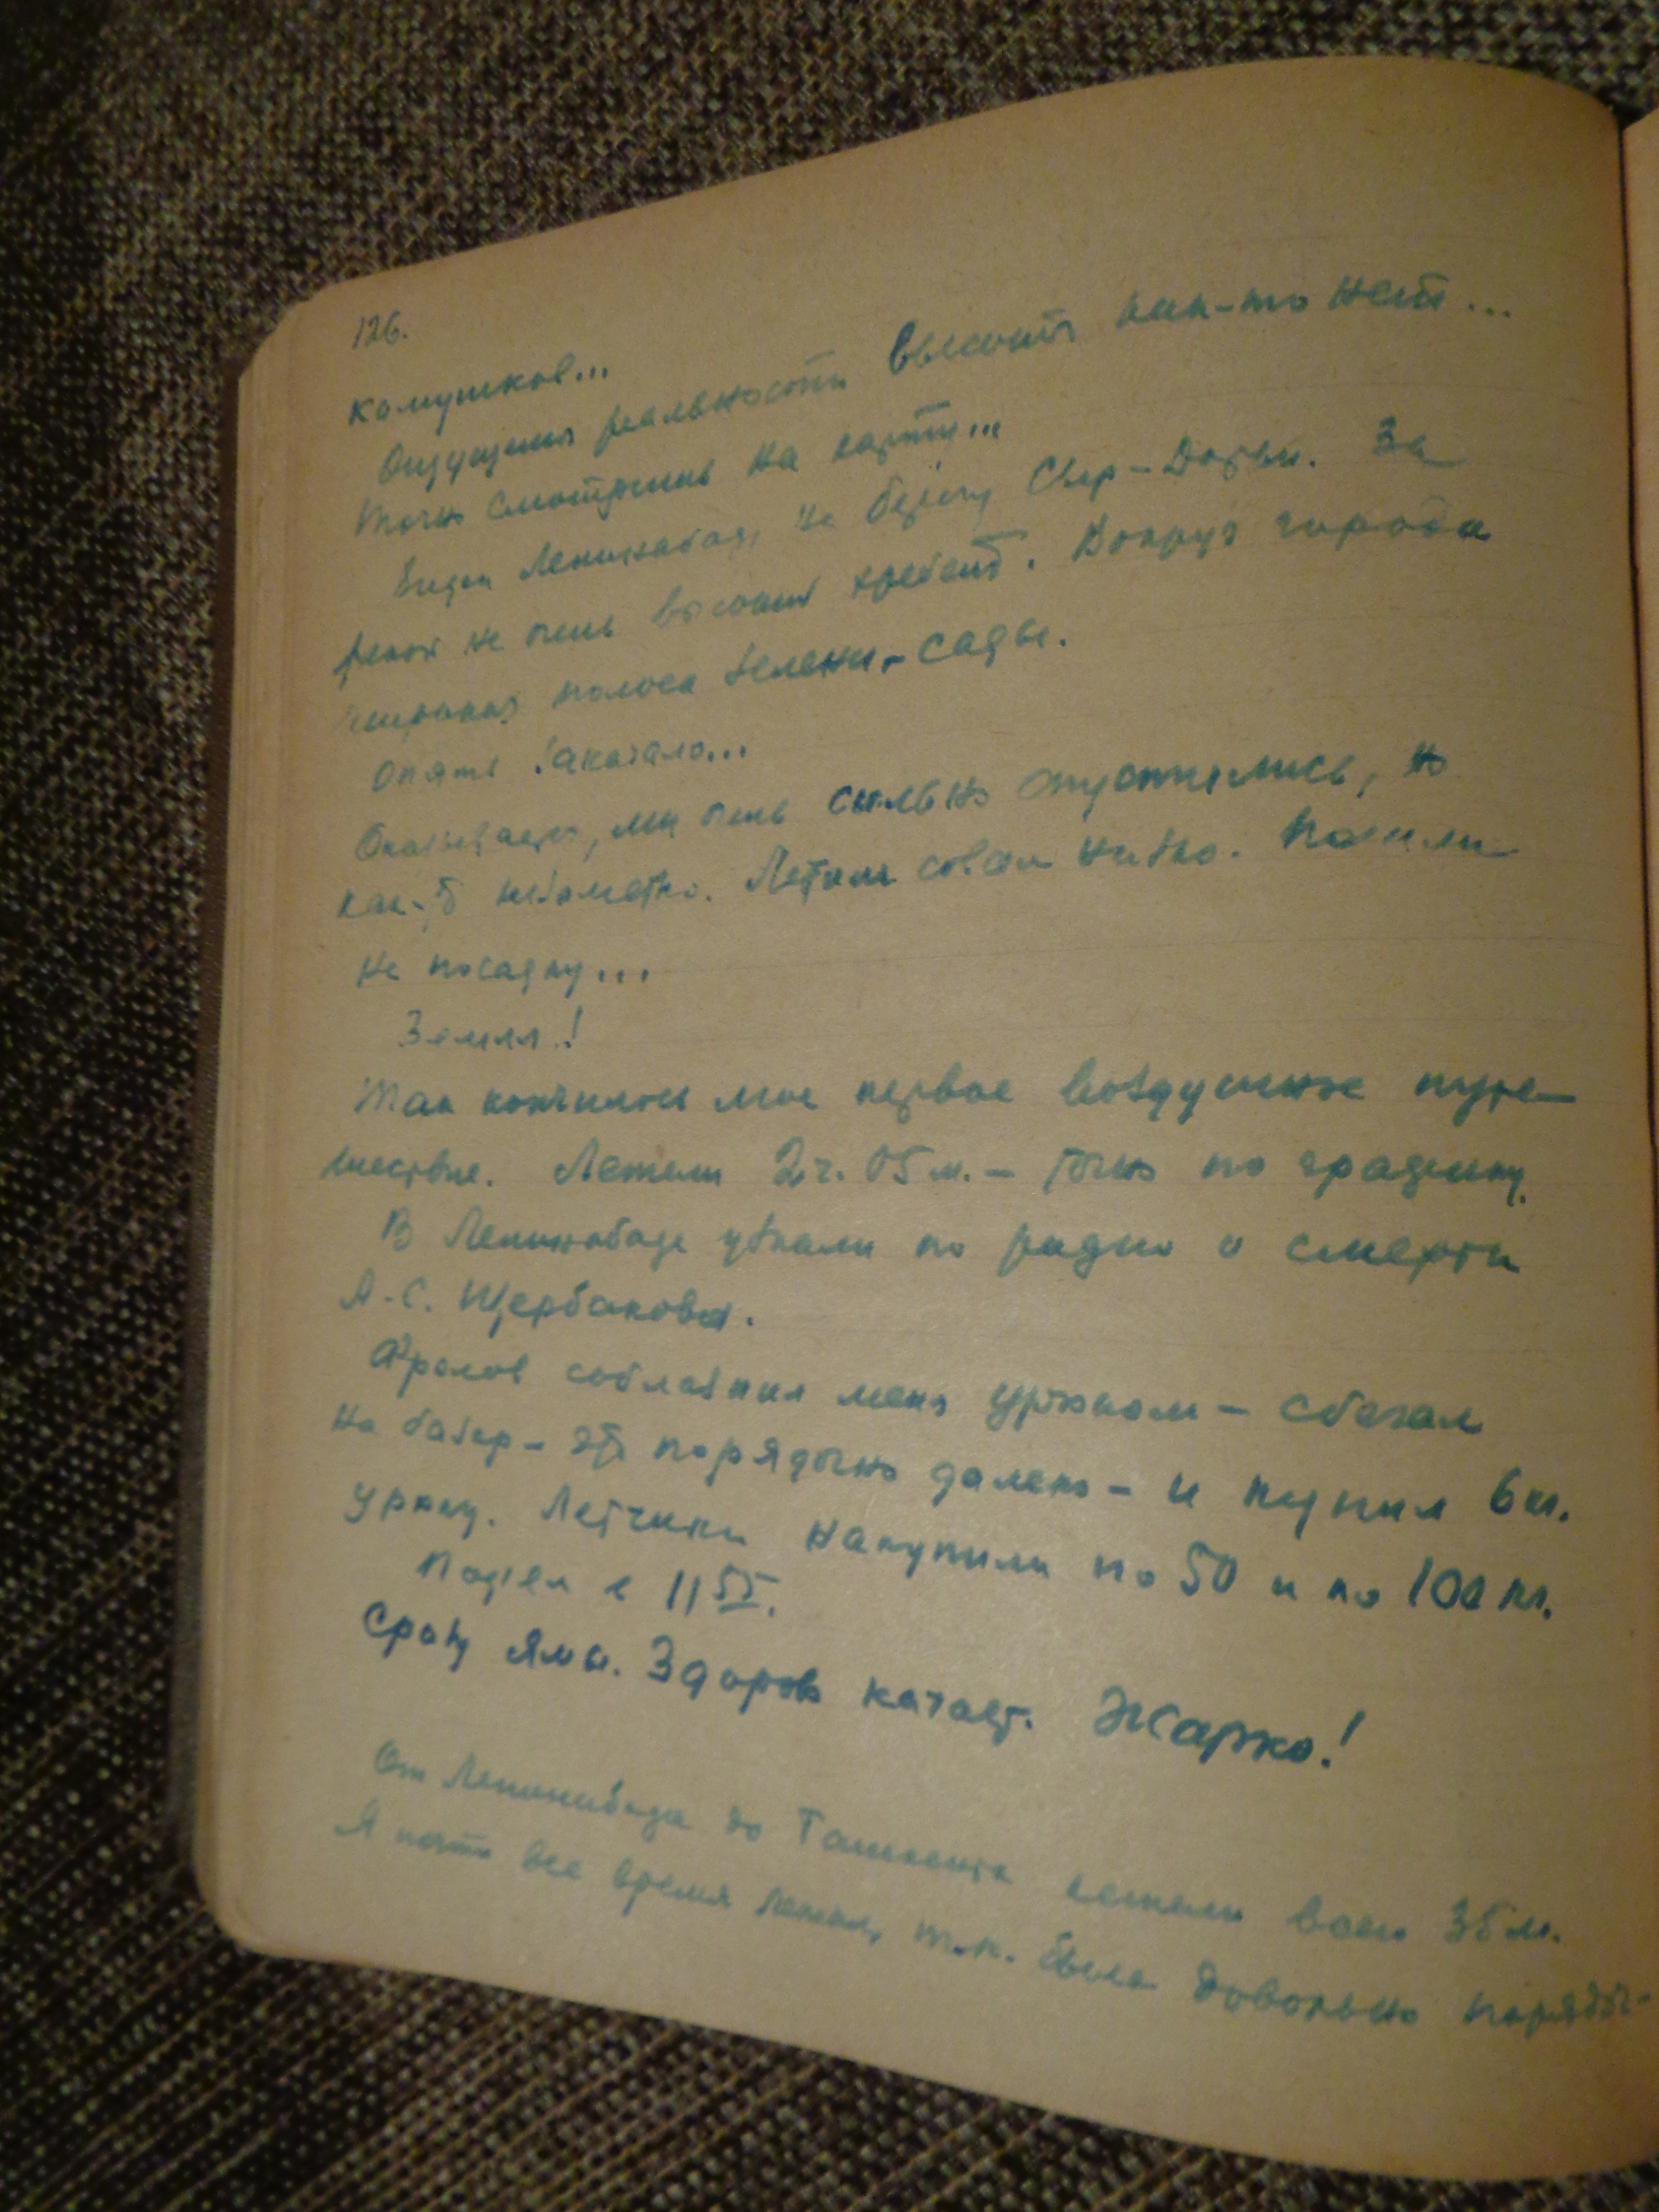 126.
камушков...
Ощущения реальности высоты как-то нет...
Точно смотришь на карту...
Виден Ленинабад, на берегу Сыр-Дарьи. За
рекой не очень высокий хребет. Вокруг города
широкая полоса зелени - сады.
Опять закачало...
Оказывается, мы очень сильно опустились, но
как-то незаметно. Летим совсем низко. Пошли
на посадку...
Земля!
Так кончилось мое первое воздушное путе-
шествие. Летели 2 ч. 05 м. - точно по графику.
В Ленинабаде узнали по радио о смерти
А.С. Щербакова.
Фролов соблазнил меня урюком - сбегал
на базар - это порядочно далеко - и купил 6 кг.
урюку. Летчики накупили по 50 и по 100 кг.
в 11 55.
Сразу ямы. Здорово качает. Жарко!
От Ленинабада до Ташкента летели всего 35 м.
Я почти все время лежал, т.к. было довольно порядоч-